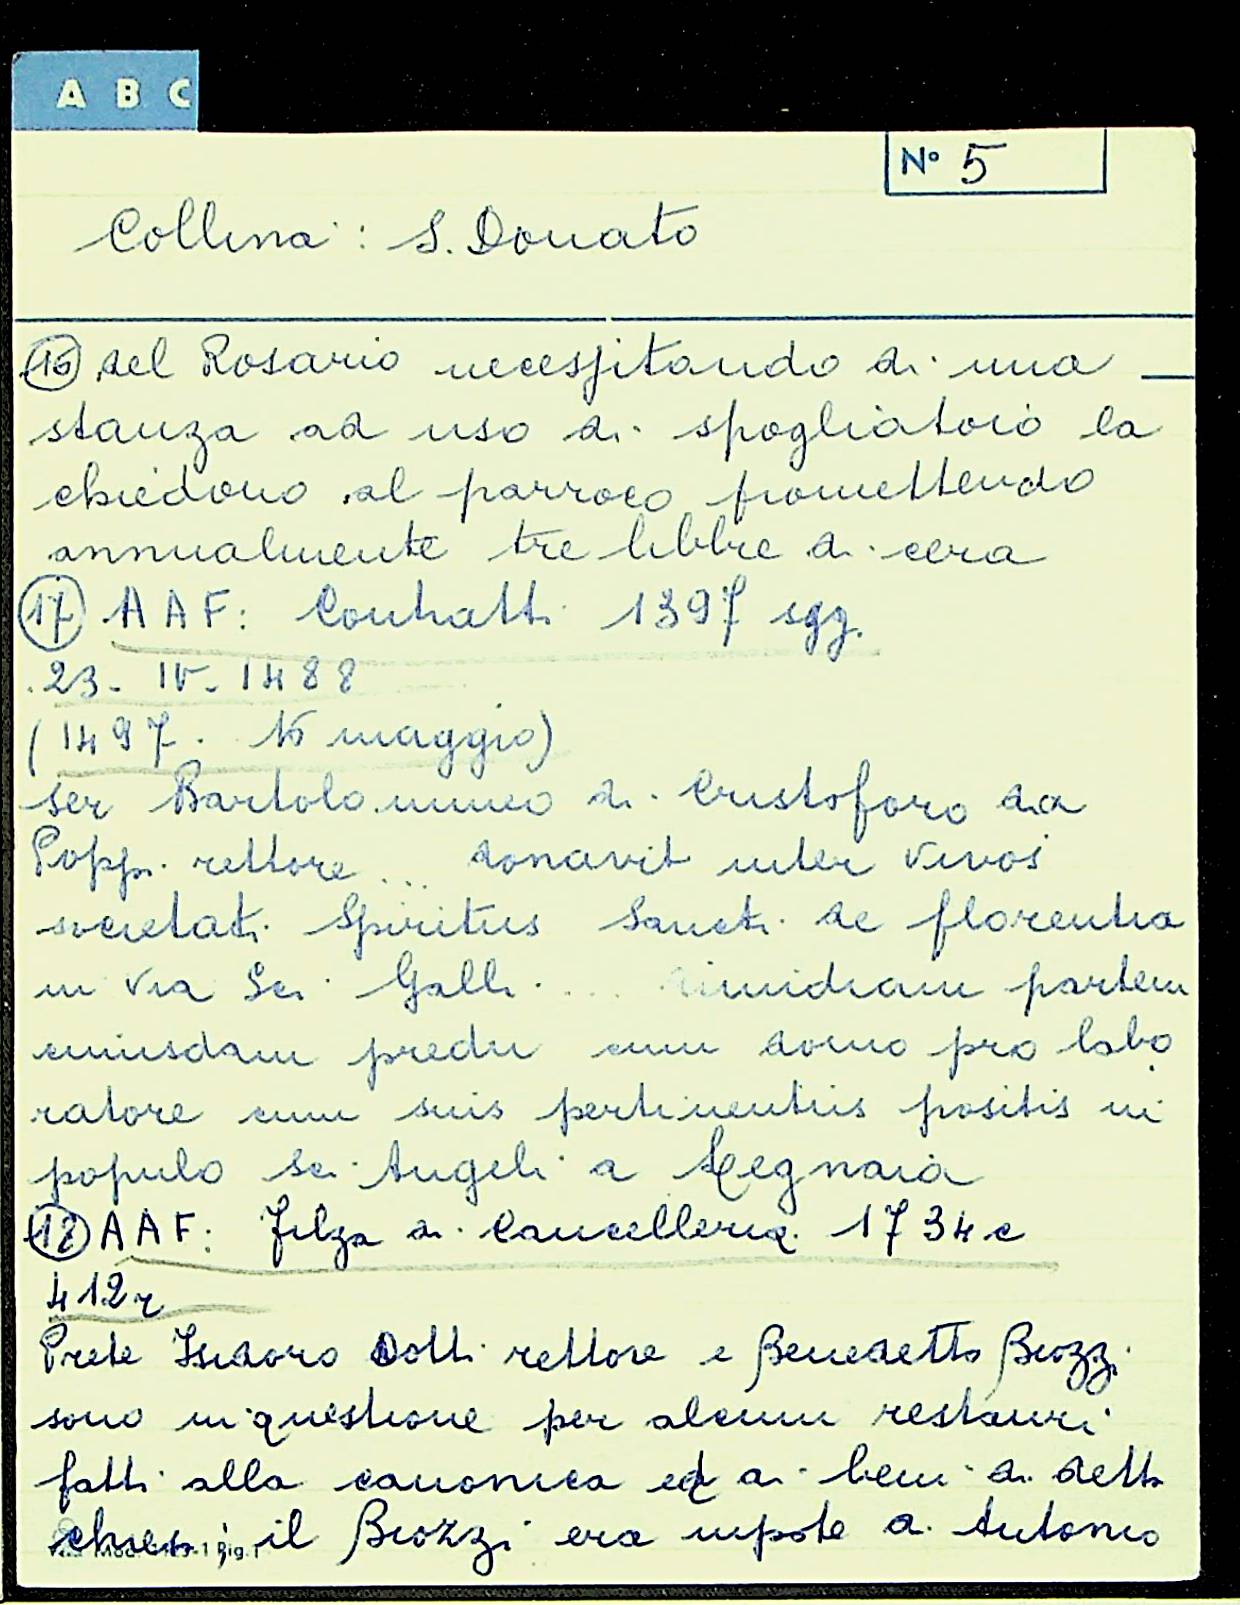 A B C
N° 5
Collina: S. Donato
16 del Rosario necessitando di una
stanza ad uso di spogliatoio la
chiedono al parroco promettendo
annualmente tre libbre di cera
17 AAF: Contratti 1397 sgg.
23-IV-1488
(1497. 16 maggio)
ser Bartolommeo di Cristoforo da
Poppi rettore ... donavit inter vivos
societati Spiritus Sancti de Florentia
in via Sci Galli ... dimidiam partem
cuiusdam predii cum domo pro labo
ratore cum suis pertinentiis positis in
populo Sci Angeli a Legnaia
18 AAF: Filza di Cancelleria 1734 c
412r
Prete Isidoro Dotti rettore e Benedetto Biozzi
sono in questione per alcuni restauri
fatti alla canonica ed ai beni di detta
chiesa; il Biozzi era nipote di Antonio